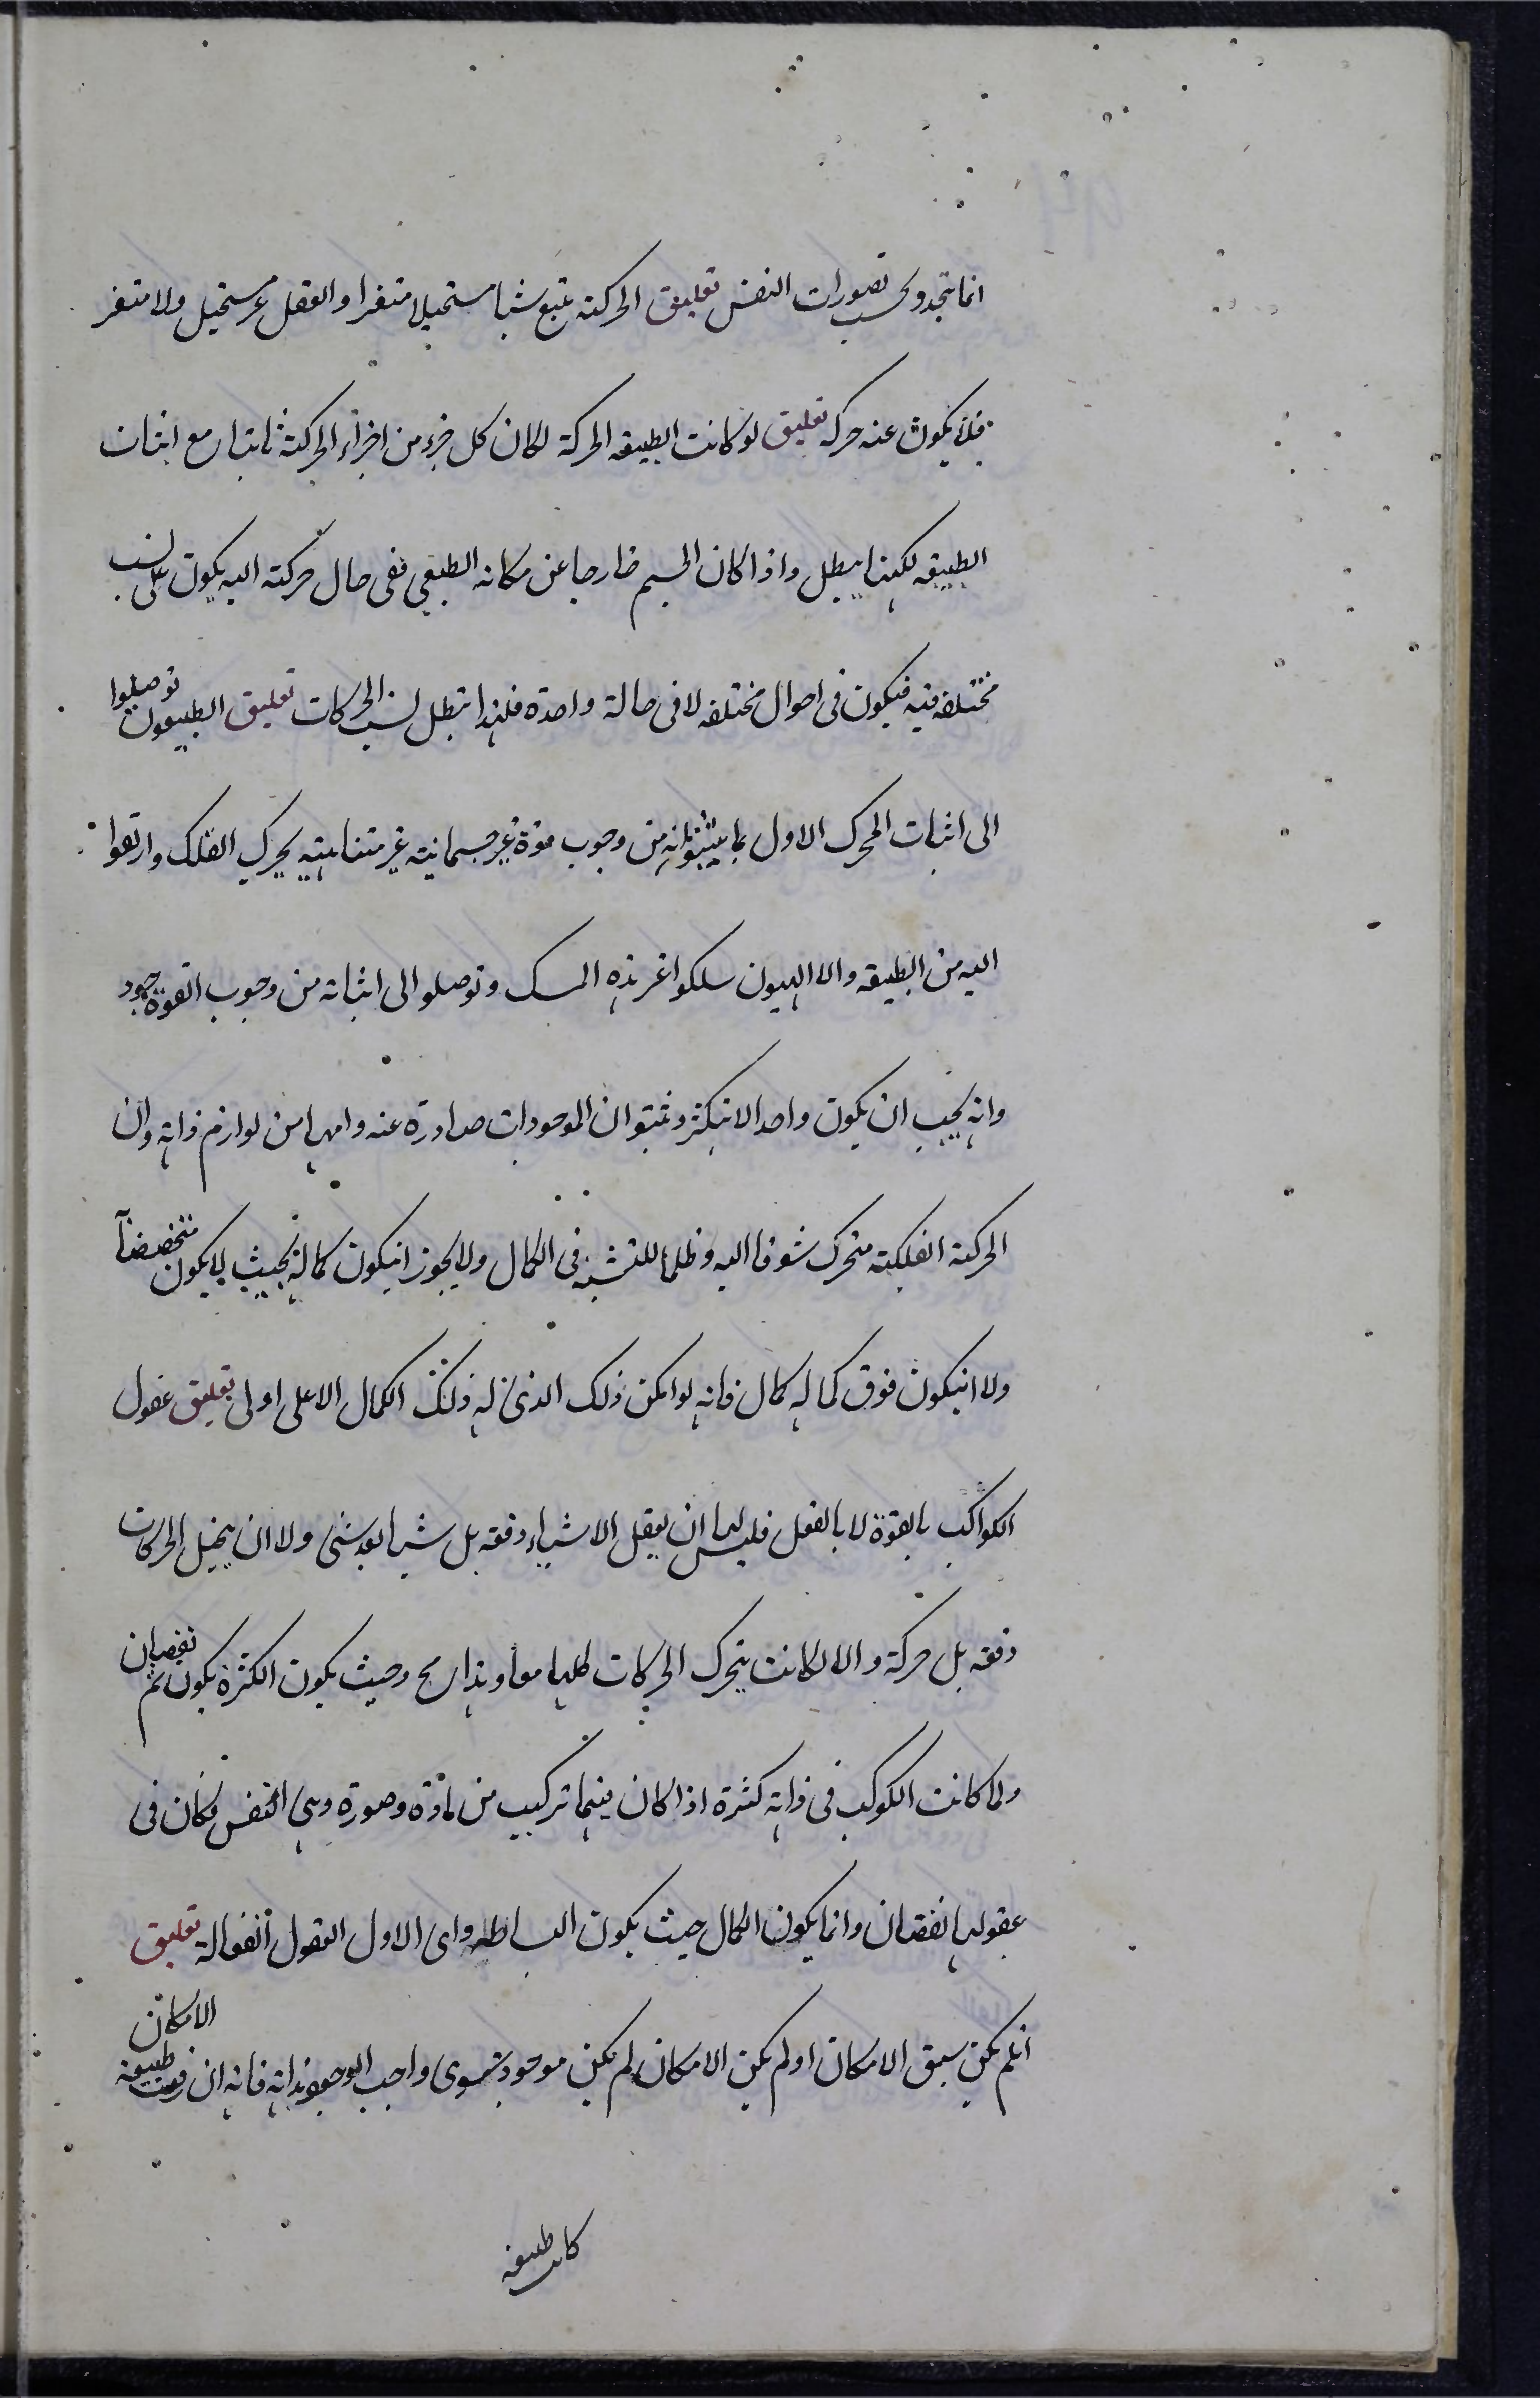 انما يتجدد بحسب تصورات النفس تعليق الحركة تتبع شيا مستحيلا متغيرا والعقل غير مستحيل ولا متغير
فلا يكون عنه حركه تعليق لو كانت الطبيعه الحركة لكان كل جزء من اجزاء الحركة ثابتا مع اثبات
الطبيعه لكنها يبطل واذا كان الجسم خارجا عن مكانه الطبيعي ففى حال حركته اليه يكون على نسب
مختلفه فيه فيكون فى احوال مختلفه لا فى حالة واحدة فلهذا تبطل نسب الحركات تعليق الطبيعيون توصلوا
الى اثبات المحرك الاول بما بينوا من وجوب قوة غير جسمانية غير متناهيه يحرك الفلك وارتقوا
اليه من الطبيعه والالهيون سلكوا غير هذه المسلك وتوصلوا الى اثباته من وجوب الوجود
وانه يجب ان يكون واحدا لا يتكثر وبينوا ان الموجودات صادرة عنه وانها من لوازم ذاته وان
الحركة الفلكية متحرك شوقا اليه وطلبا للتشبه فى الكمال ولا يجوز انيكون كماله بحيث لا يكون متخصصا
ولا انيكون فوق كماله كمال فانه لو امكن ذلك الذى له ذلك الكمال الاعلى اولى تعليق عقول
الكواكب بالقوة لا بالفعل فليس لها ان يعقل الاشياء دفعه بل شيا بعد شى ولا ان يتخيل الحركات
دفعه بل حركة والا لكانت يتحرك الحركات كلها معا وهذا مح وحيث يكون الكثرة يكون ثم نقصان
ولما كانت الكوكب فى ذاته كثرة اذا كان فيها تركيب من مادة وصورة وهى النفس فكان فى
عقولها نقصان وانما يكون الكمال حيث يكون البساطه واى الاول العقول الفعالة تعليق
انلم يكن سبق الامكان او لم يكن الامكان لم يكن موجود سوى واجب الوجود بذاته فانه ان رفعت طبيعة الامكان
كان طبيعه